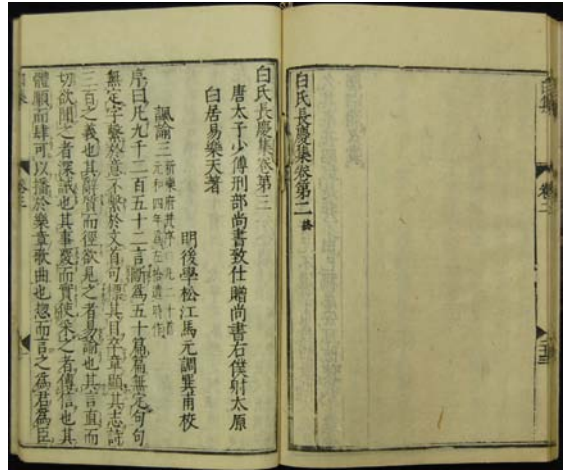 白氏長慶集卷第二 終
白氏長慶集卷第三
唐太子少傅刑部尚書致仕贈尚書右僕射太原
白居易樂天著
明後學松江馬元調巽甫校
諷諭三
元和四年為左拾遺時作
序曰凡九千二百五十二言斷為五十篇篇無定句句
無定字繫於意不繫於文首句標其目卒章顯其志詩
三百之義也其辭質而徑欲見之者易諭也其言直而
切欲聞之者深誡也其事覈而實使采之者傳信也其
體順而肆可以播於樂章歌曲也惣而言之為君為臣